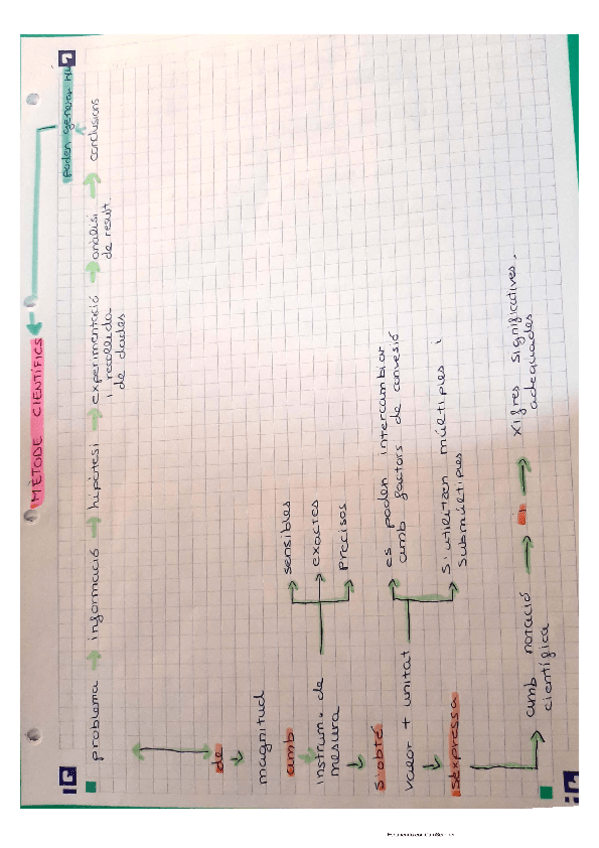 MÈTODE CIENTÍFICS
poden generar
problema → informació → hipòtesi → experimentació → anàlisi → conclusions
i recollida
de dades
de result.
de
magnitud
amb
instrum. de
mesura
sensibles
exactes
precisos
s'obté
valor + unitat
es poden intercambiar
amb factors de convesió
s'utilitzen múltiples i
submúltiples
s'expressa
amb notació
científica
i
xifres significatives.
adequades